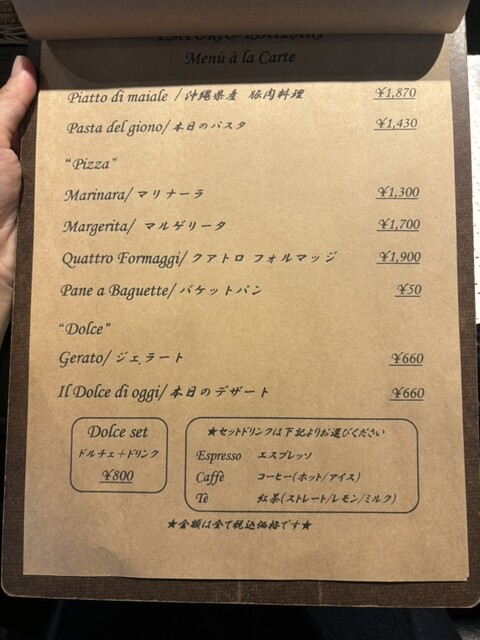 Menù à la Carte
Piatto di maiale / 沖縄県産 豚肉料理 ¥1,870
Pasta del giono/ 本日のパスタ ¥1,430
"Pizza"
Marinara/ マリナーラ ¥1,300
Margerita/ マルゲリータ ¥1,700
Quattro Formaggi/ クアトロ フォルマッジ ¥1,900
Pane a Baguette/ バケットパン ¥50
"Dolce"
Gerato/ ジェラート ¥660
Il Dolce di oggi/ 本日のデザート ¥660
Dolce set
ドルチェ+ドリンク
¥800
★セットドリンクは下記よりお選びください
Espresso エスプレッソ
Caffè コーヒー(ホット/アイス)
Tè 紅茶(ストレート/レモン/ミルク)
★金額は全て税込価格です★